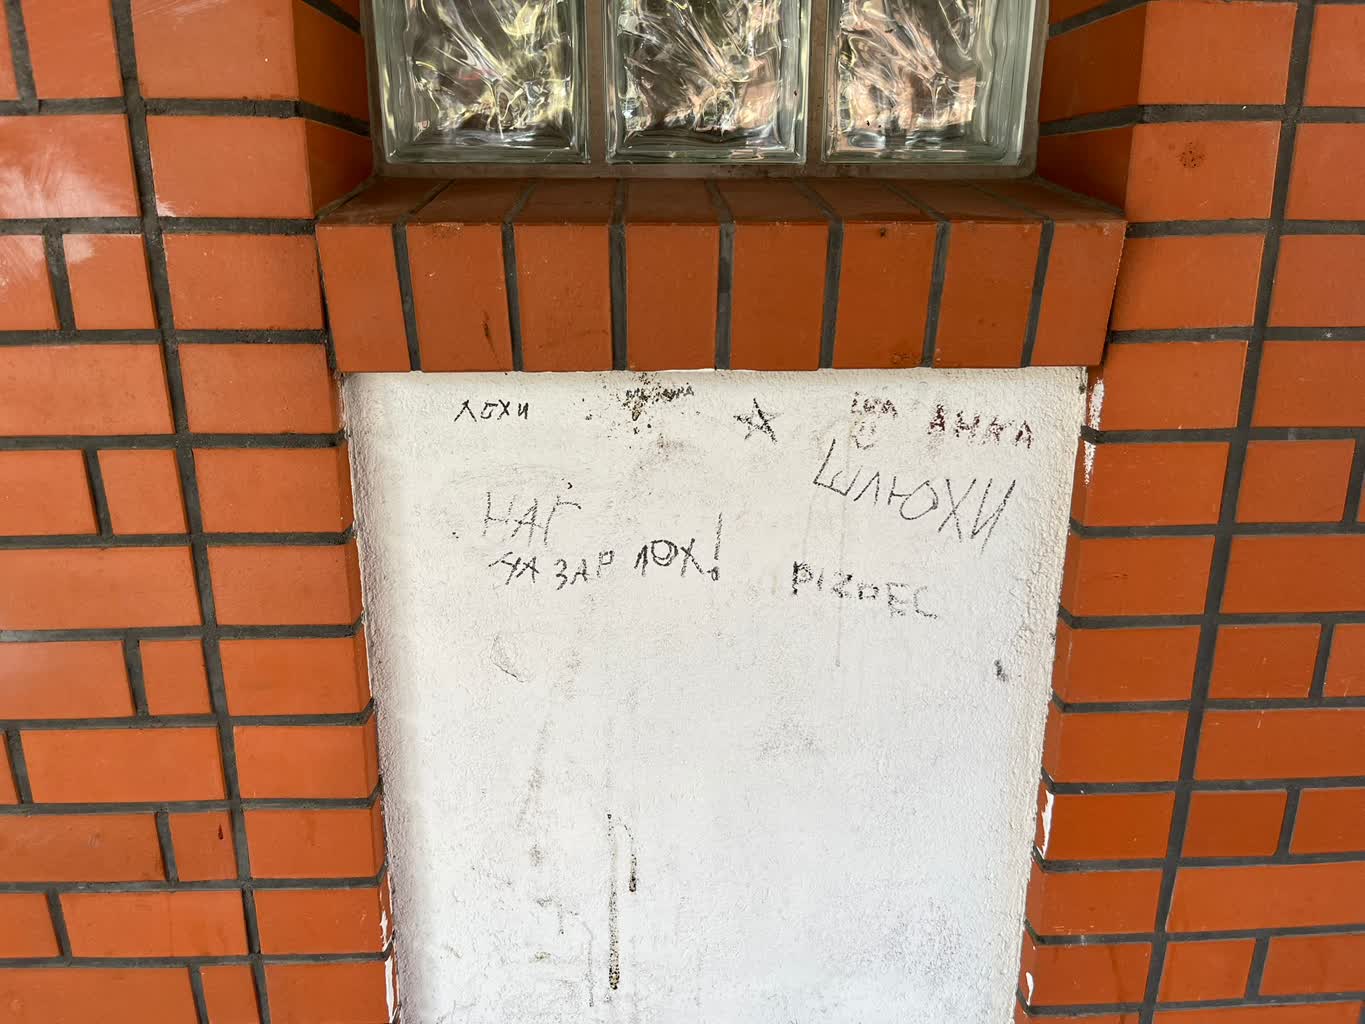 ЛОХИ
АНКА
ШЛЮХИ
НАГ
ЧА ЗАР ЛОХ!
PIZDEC